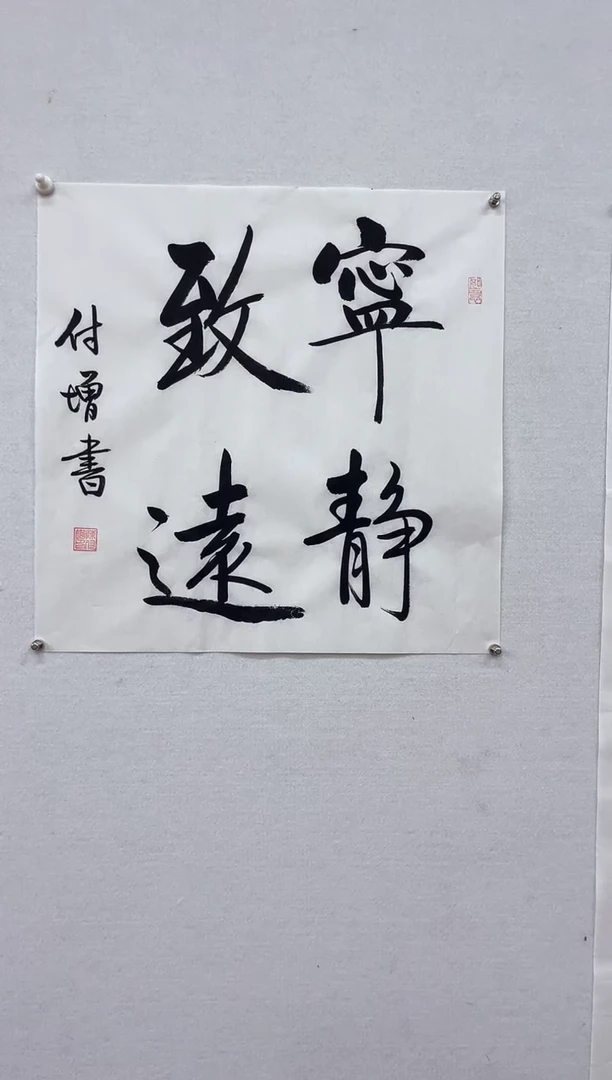 寧静
致遠
付增書